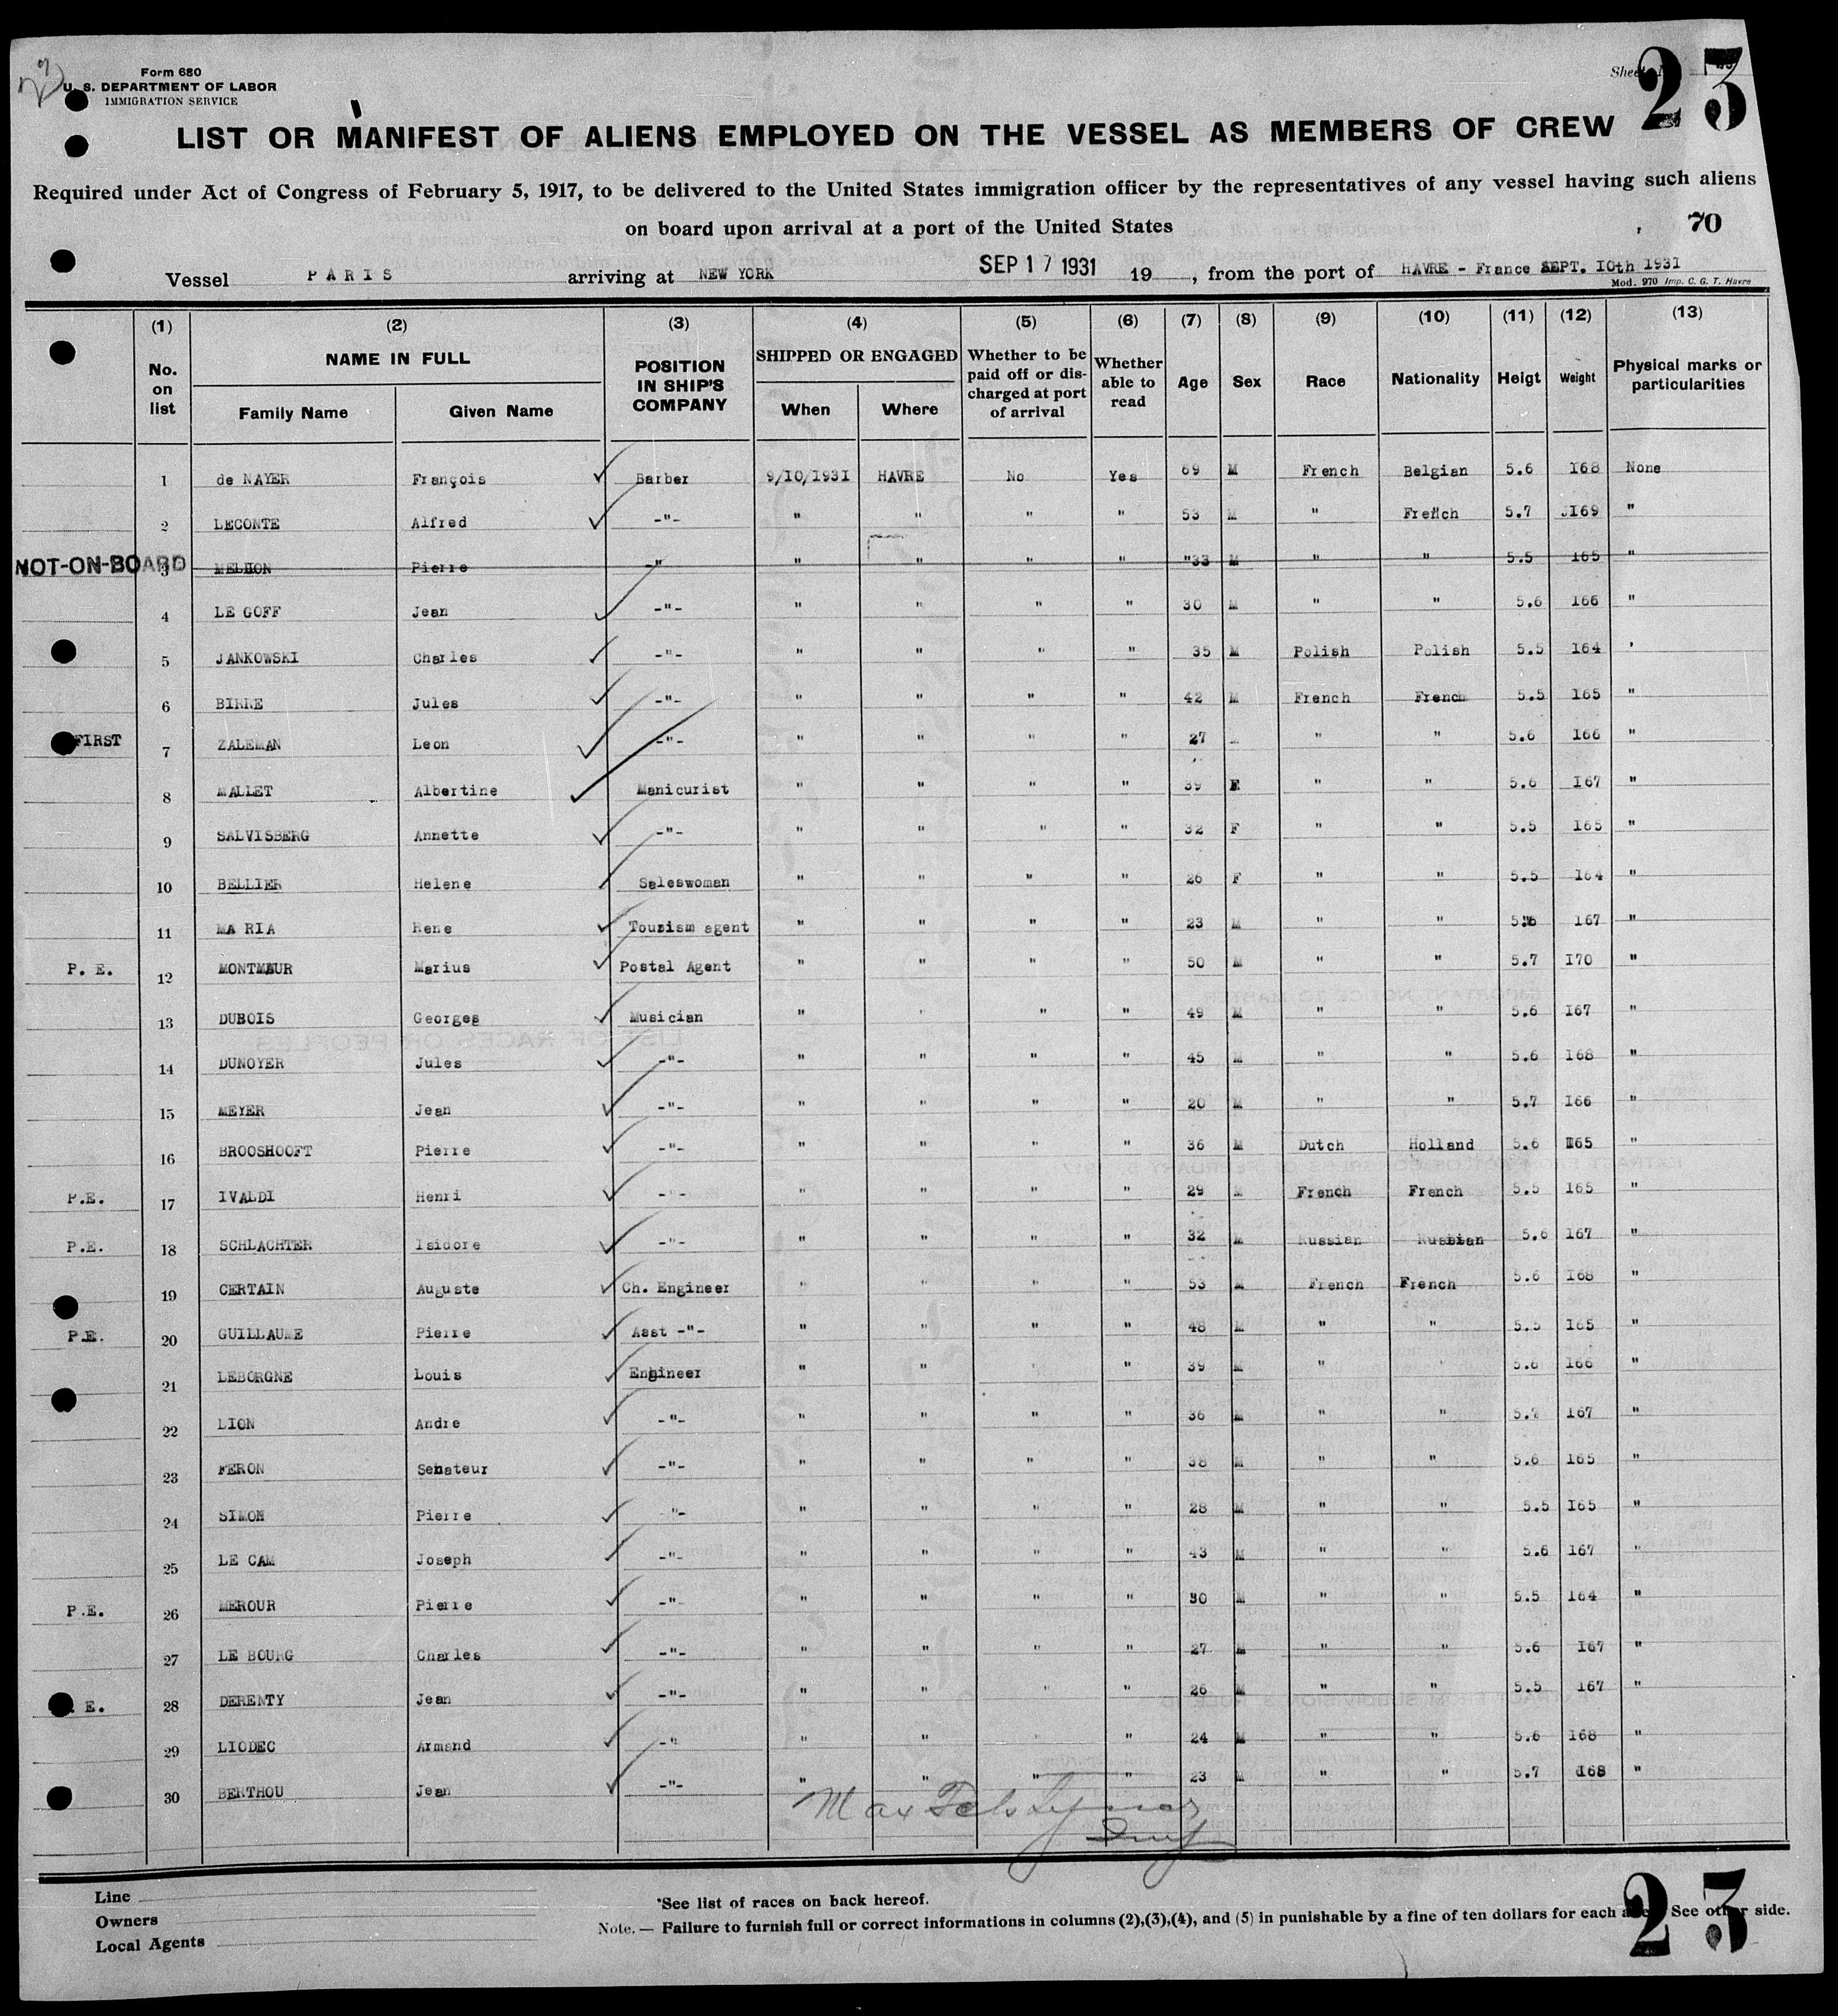 Form 680
U. S. DEPARTMENT OF LABOR
IMMIGRATION SERVICE
Sheet
23
LIST OR MANIFEST OF ALIENS EMPLOYED ON THE VESSEL AS MEMBERS OF CREW
Required under Act of Congress of February 5, 1917, to be delivered to the United States immigration officer by the representatives of any vessel having such aliens
on board upon arrival at a port of the United States
70
Vessel PARIS arriving at NEW YORK SEP 17 1931 19 , from the port of HAVRE - France SEPT. IOth 1931
Mod. 970 Imp. C. G. T. Havre
(1) (2) (3) (4) (5) (6) (7) (8) (9) (10) (11) (12) (13)
No. on list NAME IN FULL Family Name Given Name POSITION IN SHIP'S COMPANY SHIPPED OR ENGAGED When Where Whether to be paid off or discharged at port of arrival Whether able to read Age Sex Race Nationality Heigt Weight Physical marks or particularities
1 de NAYER François Barber 9/10/1931 HAVRE No Yes 69 M French Belgian 5.6 I68 None
2 LECONTE Alfred -"- " " " " 53 M " French 5.7 I69 "
NOT-ON-BOARD 3 MELHON Pierre -" " " " " "33 M " " 5.5 I65 "
4 LE GOFF Jean -"- " " " " 30 M " " 5.6 I66 "
5 JANKOWSKI Charles -"- " " " " 35 M Polish Polish 5.5 I64 '
6 BIRRE Jules -"- " " " " 42 M French French 5.5 I65 "
FIRST 7 ZALEMAN Leon -"- " " " " 27 " " 5.6 I66 "
8 MALLET Albertine Manicurist " " " " 39 F " " 5.6 I67 "
9 SALVISBERG Annette -"- " " " " 32 F " " 5.5 I65 "
10 BELLIER Helene Saleswoman " " " " 26 F " " 5.5 I64 "
11 MA RIA Rene Tourism agent " " " " 23 M " " 5.6 I67 "
P. E. 12 MONTMAUR Marius Postal Agent " " " " 50 M " " 5.7 I70 "
13 DUBOIS Georges Musician " ' " " 49 M " " 5.6 I67 "
14 DUNOYER Jules -"- " " " " 45 M " " 5.6 I68 "
15 MEYER Jean -"- " " " " 20 M " " 5.7 I66 "
16 BROOSHOOFT Pierre -"- " " " " 36 M Dutch Holland 5.6 I65 "
P.E. 17 IVALDI Henri -"- " " " " 29 M French French 5.5 I65 "
P.E. 18 SCHLACHTER Isidore -"- " " " " 32 M Russian Russian 5.6 I67 "
19 CERTAIN Auguste Ch. Engineer " " " " 53 M French French 5.6 I68 "
P.E. 20 GUILLAUME Pierre Asst -"- " " " " 48 M " " 5.5 I65 "
21 LEBORGNE Louis Engineer " " " " 39 M " ' 5.6 I66 "
22 LION Andre -"- " " " " 36 M " " 5.7 I67 "
23 FERON Senateur -"- " " " " 38 M " " 5.6 I65 "
24 SIMON Pierre -"- " " " " 28 M " " 5.5 I65 "
25 LE CAM Joseph -"- " " " " 43 M " " 5.6 I67 "
P.E. 26 MEROUR Pierre -"- " " " " 30 M " " 5.5 I64 "
27 LE BOURG Charles -"- " " " " 27 M " " 5.6 I67 "
E. 28 DERENTY Jean -"- " " " " 26 M " " 5.5 I67 "
29 LIODEC Armand -" " " " " 24 M " " 5.6 I68 "
30 BERTHOU Jean -"- " " " " 23 M " " 5.7 I68 "
Max
Line
Owners
Local Agents
*See list of races on back hereof.
Note. — Failure to furnish full or correct informations in columns (2),(3),(4), and (5) in punishable by a fine of ten dollars for each alien See other side.
23